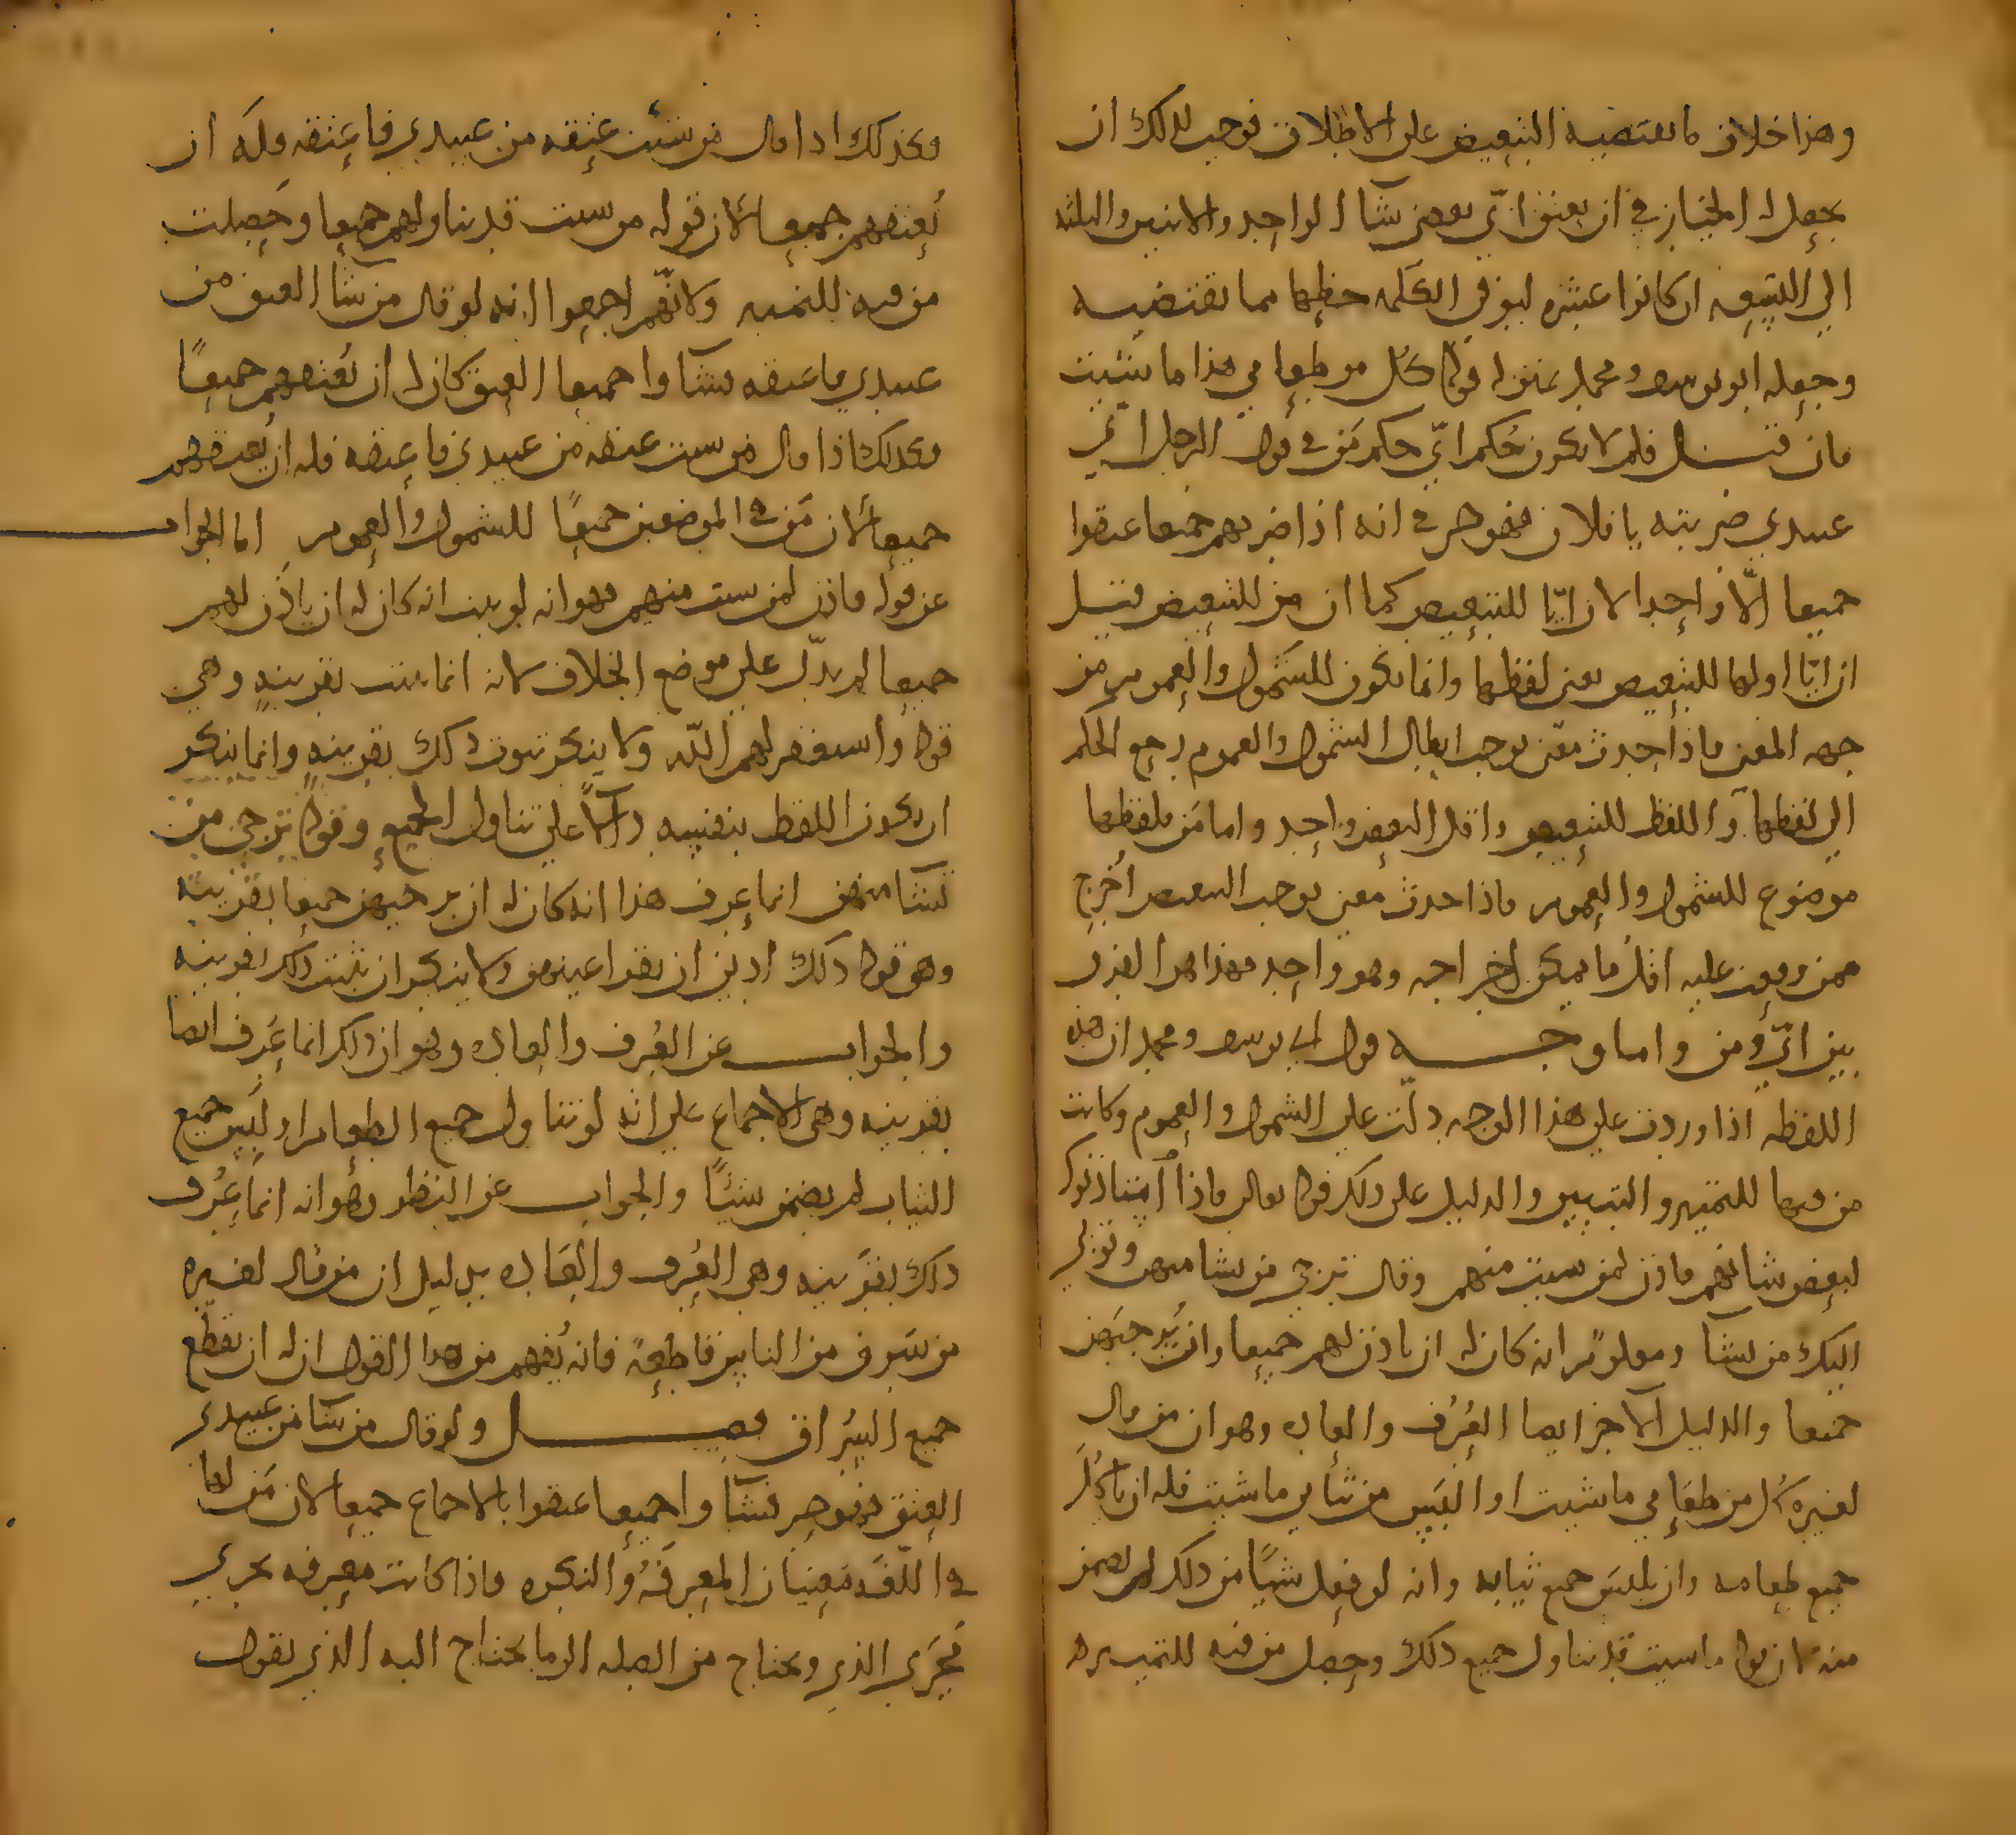 وهذا خلاف ما يقتضيه التبعيض على الاطلاق فوجب لذلك ان
يجعل له الخيار في ان يعتق اي بعض شآ الواحد والاثنين والثلثه
الي التسعه ان كانوا عشره ليوفي الكلمه حظها مما تقتضيه
وجعله ابو يوسف ومحمد بمنزله قوله كل من طعامي هذا ما شئت
فان قيل فلم لا يكون حكم ايّ حكم مَن في قول الرجل ايّ
عبيدي ضربته يا فلان فهو حر في انه اذا ضربهم جميعا عتقوا
جميعا الّا واحدا لان ايّا للتبعيض كما ان من للتبعيض قيل
ان ايّا اولها للتبعيض يعني لفظها وانما تكون للشمول والعموم من
جهه المعنى فاذا حدث معنى يوجب ابطال الشمول والعموم رجع الحكم
الي لفظها واللفظ للتبعيض واقل البعض واحد واما مَن فلفظها
موضوع للشمول والعموم فاذا حدث معنى يوجب التبعيض أخرج
ممن وقعت عليه اقلّ ما يمكن اخراجه وهو واحد فهذا هو الفرق
بين ايّ ومن واما وجه قول ابي يوسف ومحمد ان هذه
اللفظه اذا وردت على هذا الوجه دلّت على الشمول والعموم وكانت
من فيها للتمييز والتبيين والدليل على ذلك قوله تعالى فاذا استاذنوك
لبعض شانهم فاذن لمن شيت منهم وقال ترجي من تشا منهن وتؤوي
اليك من تشآ ومعلومٌ انه كان له ان ياذن لهم جميعا وان يُرجيَهن
جميعا والدليل الآخر ايضا العُرف والعاده وهو ان من قال
لغيره كُل من طعامي ما شيت او البَس من ثيابي ما شيت فله ان ياكُلَ
جميع طعامه وان يلبسَ جميع ثيابه وانه لو فعل شيًا من ذلك لم يضمن
منه لان قوله ما شيت قد يتناول جميع ذلك وجعل من فيه للتمييز
وكذلك اذا قال من شئت عتقه من عبيدي فاعتقه فله ان
يُعتقهم جميعا لان قوله من شيت قد يتناولهم جميعا وحصلت
من فيه للتمييز ولانّهم اجمعوا انه لو قال من شآ العتق من
عبيدي فاعتقه فشآوا جميعا العتق كان له ان يُعتقهم جميعًا
وكذلك اذا قال من شيت عتقه من عبيدي فاعتقه فله ان يُعتقهم
جميعا لان مَن في الموضعين جميعًا للشمول والعموم اما الجواب
عن قوله فاذن لمن شيت منهم فهو انه لو ثبت انه كان له ان ياذَن لهم
جميعا لم يدلّ على موضع الخلاف لانه انما يثبت بقرينهٍ وهي
قوله واستغفر لهم اللّه ولا ينكر ثبوت ذلك بقرينهٍ وانما ينكر
ان يكون اللفظ بنفسه دالًّا على تناول الجميع وقوله ترجي من
تشآ منهن انما عرف هذا انه كان له ان يرجيهن جميعا بقرينه
وهو قوله ذلك ادنى ان تقر اعينهن ولا ينكر ان يثبت ذلك بقرينه
والجواب عن العُرف والعاده وهو ان ذلك انما عُرف ايضا
بقرينه وهي الاجماع على انّه لو تناول جميع الطعام او لبس جميع
الثياب لم يضمن شيئًا والجواب عن النظر وهو انه انما عُرف
ذلك بقرينه وهي العُرف والعاده بدليل ان من قال لغيره
من سَرق من الناس فاقطعهُ فانه يُفهم من هذا القول ان له ان يقطع
جميع السُراق فصل ولو قال من شآ من عبيدي
العتق فهو حر فشآوا جميعا عتقوا بالاجماع جميعا لان مَن لها
في اللّغه مَعنيان المعرفَهُ والنكره فاذا كانت معرفه تجري
مَجرَى الذي وتحتاج من الصله الى ما يحتاج اليه الذي تقول